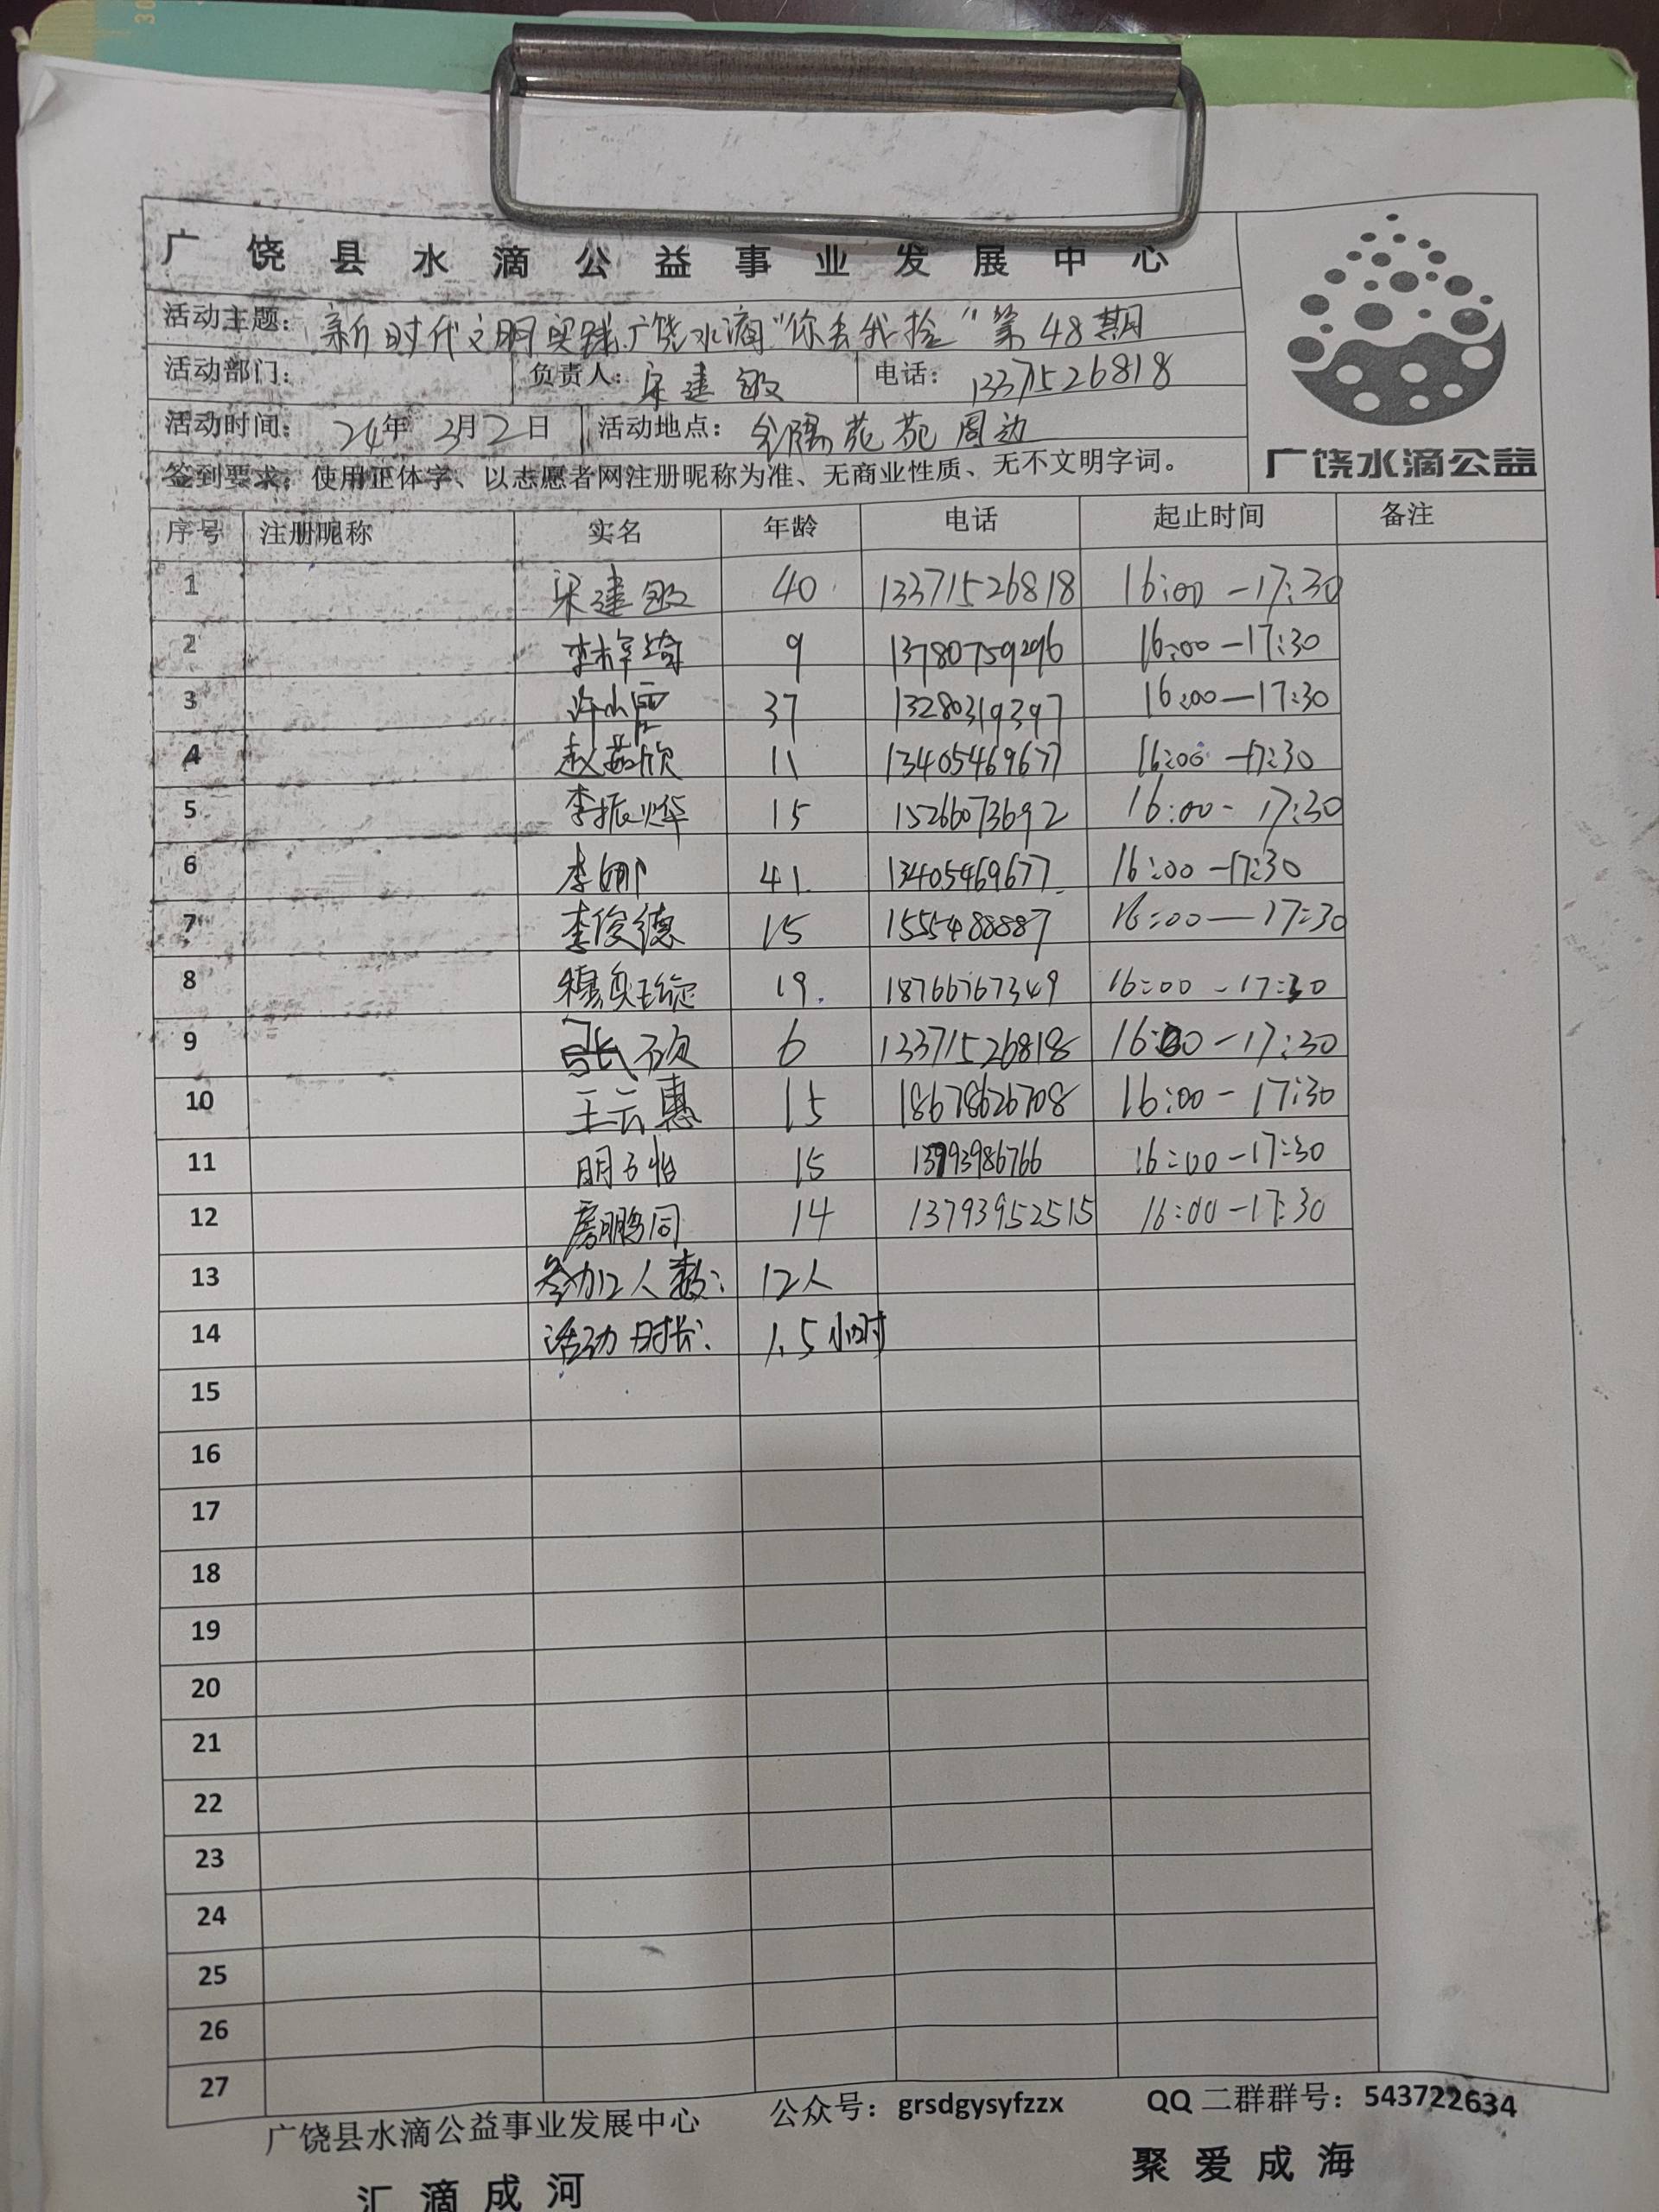 广饶县水滴公益事业发展中心
活动主题：新时代文明实践广饶水滴"你丢我捡"第48期
活动部门： 负责人：宋建敏 电话：13371526818
活动时间：24年3月2日 活动地点：周边
广饶水滴公益
签到要求：使用正体字、以志愿者网注册昵称为准、无商业性质、无不文明字词。
序号 注册昵称 实名 年龄 电话 起止时间 备注
1 宋建敏 40 13371526818 16:00-17:30
2 9 13780759296 16:00-17:30
3 37 13280319397 16:00-17:30
4 赵茹欣 11 13405469677 16:00-17:30
5 李振烨 15 15266073692 16:00-17:30
6 李娜 41 13405469677 16:00-17:30
7 李俊德 15 1555488887 16:00-17:30
8 19 18766767349 16:00-17:30
9 6 13371526818 16:00-17:30
10 王云惠 15 18678626708 16:00-17:30
11 明子怡 15 13793986766 16:00-17:30
12 房鹏同 14 13793952515 16:00-17:30
13 参加人数：12人
14 活动时长：1.5小时
15
16
17
18
19
20
21
22
23
24
25
26
27
广饶县水滴公益事业发展中心 公众号：grsdgysyfzzx QQ二群群号：543722634
汇滴成河 聚爱成海